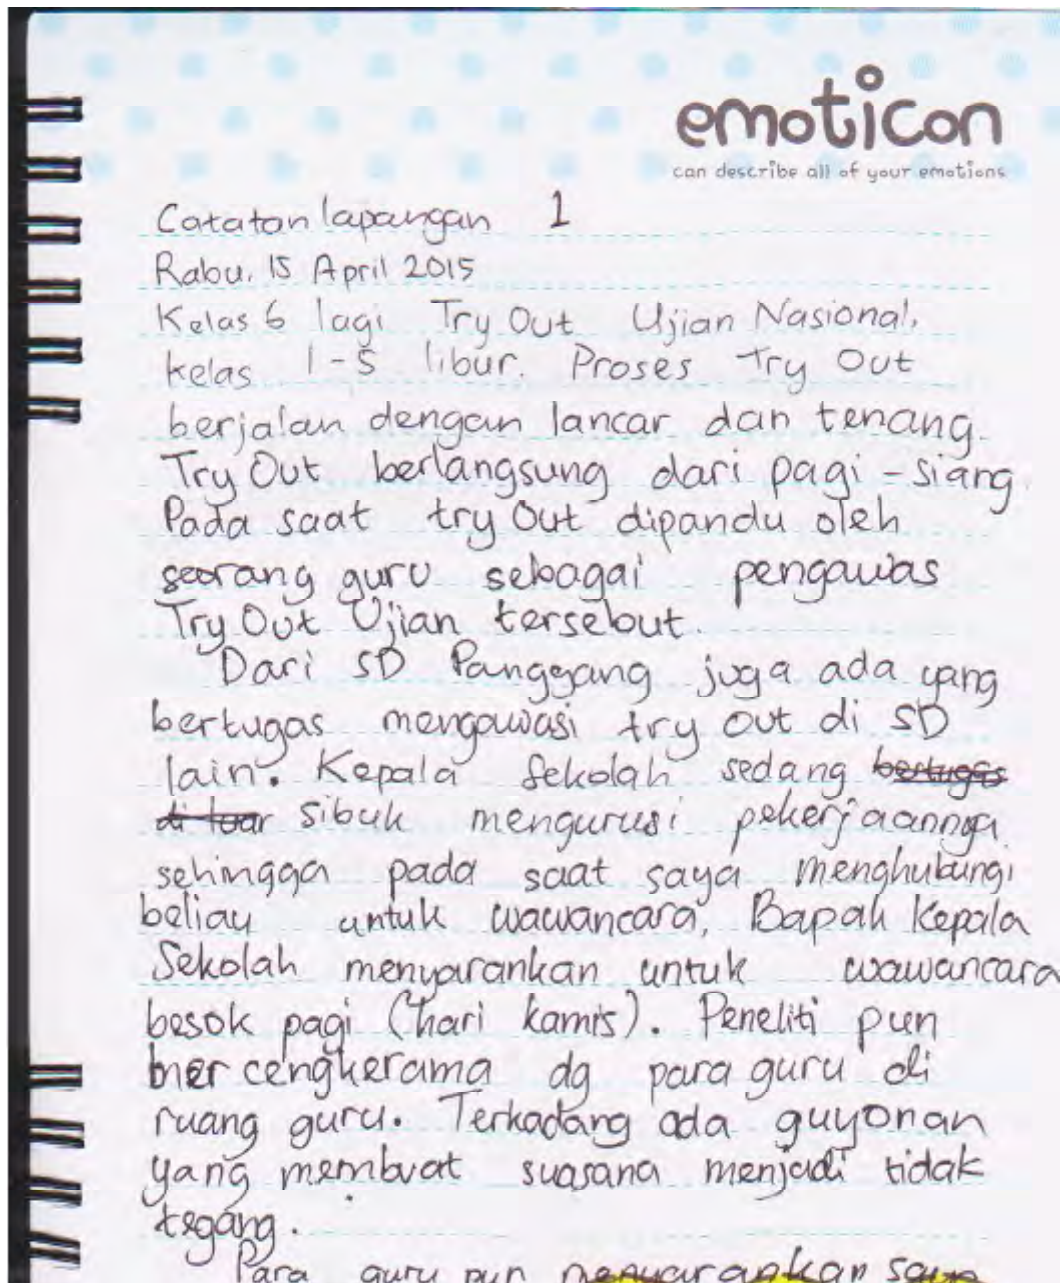 emoticon
can describe all of your emotions
Catatan lapangan 1
Rabu, 15 April 2015
Kelas 6 lagi Try Out Ujian Nasional,
kelas 1-5 libur. Proses Try Out
berjalan dengan lancar dan tenang.
Try Out berlangsung dari pagi - siang.
Pada saat try Out dipandu oleh
seorang guru sebagai pengawas
Try Out Ujian tersebut.
Dari SD Panggang juga ada yang
bertugas mengawasi try out di SD
lain. Kepala Sekolah sedang bertugas
di luar sibuk mengurusi pekerjaannya
sehingga pada saat saya menghubungi
beliau untuk wawancara, Bapak Kepala
Sekolah menyarankan untuk wawancara
besok pagi (hari kamis). Peneliti pun
bercengkerama dg para guru di
ruang guru. Terkadang ada guyonan
yang membuat suasana menjadi tidak
tegang.
Para guru pun menyarankan saya